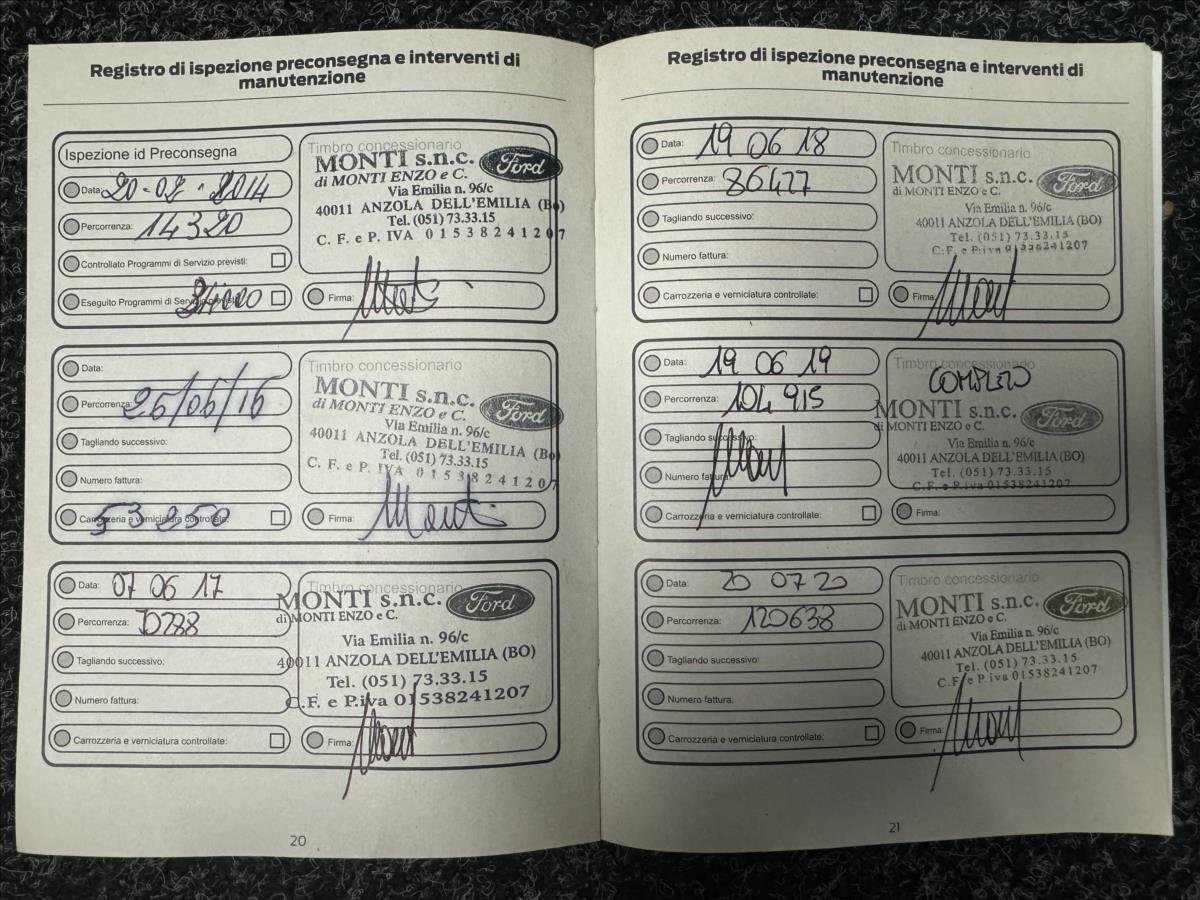 Registro di ispezione preconsegna e interventi di
manutenzione
Ispezione id Preconsegna
Data:
Percorrenza: 14320
Controllato Programmi di Servizio previsti:
Eseguito Programmi di Servizio previsti:
Timbro concessionario
MONTI s.n.c. Ford
di MONTI ENZO e C.
Via Emilia n. 96/c
40011 ANZOLA DELL'EMILIA (Bo)
Tel. (051) 73.33.15
C. F. e P. IVA 01538241207
Firma:
Data:
Percorrenza:
Tagliando successivo:
Numero fattura:
Carrozzeria e verniciatura controllate: 53250
Timbro concessionario
MONTI s.n.c. Ford
di MONTI ENZO e C.
Via Emilia n. 96/c
40011 ANZOLA DELL'EMILIA (Bo)
Tel. (051) 73.33.15
C. F. e P. IVA 01538241207
Firma: Monti
Data: 07 06 17
Percorrenza:
Tagliando successivo:
Numero fattura:
Carrozzeria e verniciatura controllate:
Timbro concessionario
MONTI s.n.c. Ford
di MONTI ENZO e C.
Via Emilia n. 96/c
40011 ANZOLA DELL'EMILIA (BO)
Tel. (051) 73.33.15
C.F. e P.iva 01538241207
Firma:
20
Registro di ispezione preconsegna e interventi di
manutenzione
Data: 19 06 18
Percorrenza: 86427
Tagliando successivo:
Numero fattura:
Carrozzeria e verniciatura controllate:
Timbro concessionario
MONTI s.n.c. Ford
di MONTI ENZO e C.
Via Emilia n. 96/c
40011 ANZOLA DELL'EMILIA (BO)
Tel. (051) 73.33.15
C.F. e P.iva 01538241207
Firma:
Data: 19 06 19
Percorrenza: 104 915
Tagliando successivo:
Numero fattura:
Carrozzeria e verniciatura controllate:
Timbro concessionario
COMPLETO
MONTI s.n.c. Ford
di MONTI ENZO e C.
Via Emilia n. 96/c
40011 ANZOLA DELL'EMILIA (BO)
Tel. (051) 73.33.15
C.F. e P.iva 01538241207
Firma:
Data: 20 07 20
Percorrenza: 120638
Tagliando successivo:
Numero fattura:
Carrozzeria e verniciatura controllate:
Timbro concessionario
MONTI s.n.c. Ford
di MONTI ENZO e C.
Via Emilia n. 96/c
40011 ANZOLA DELL'EMILIA (BO)
Tel. (051) 73.33.15
C.F. e P.iva 01538241207
Firma:
21